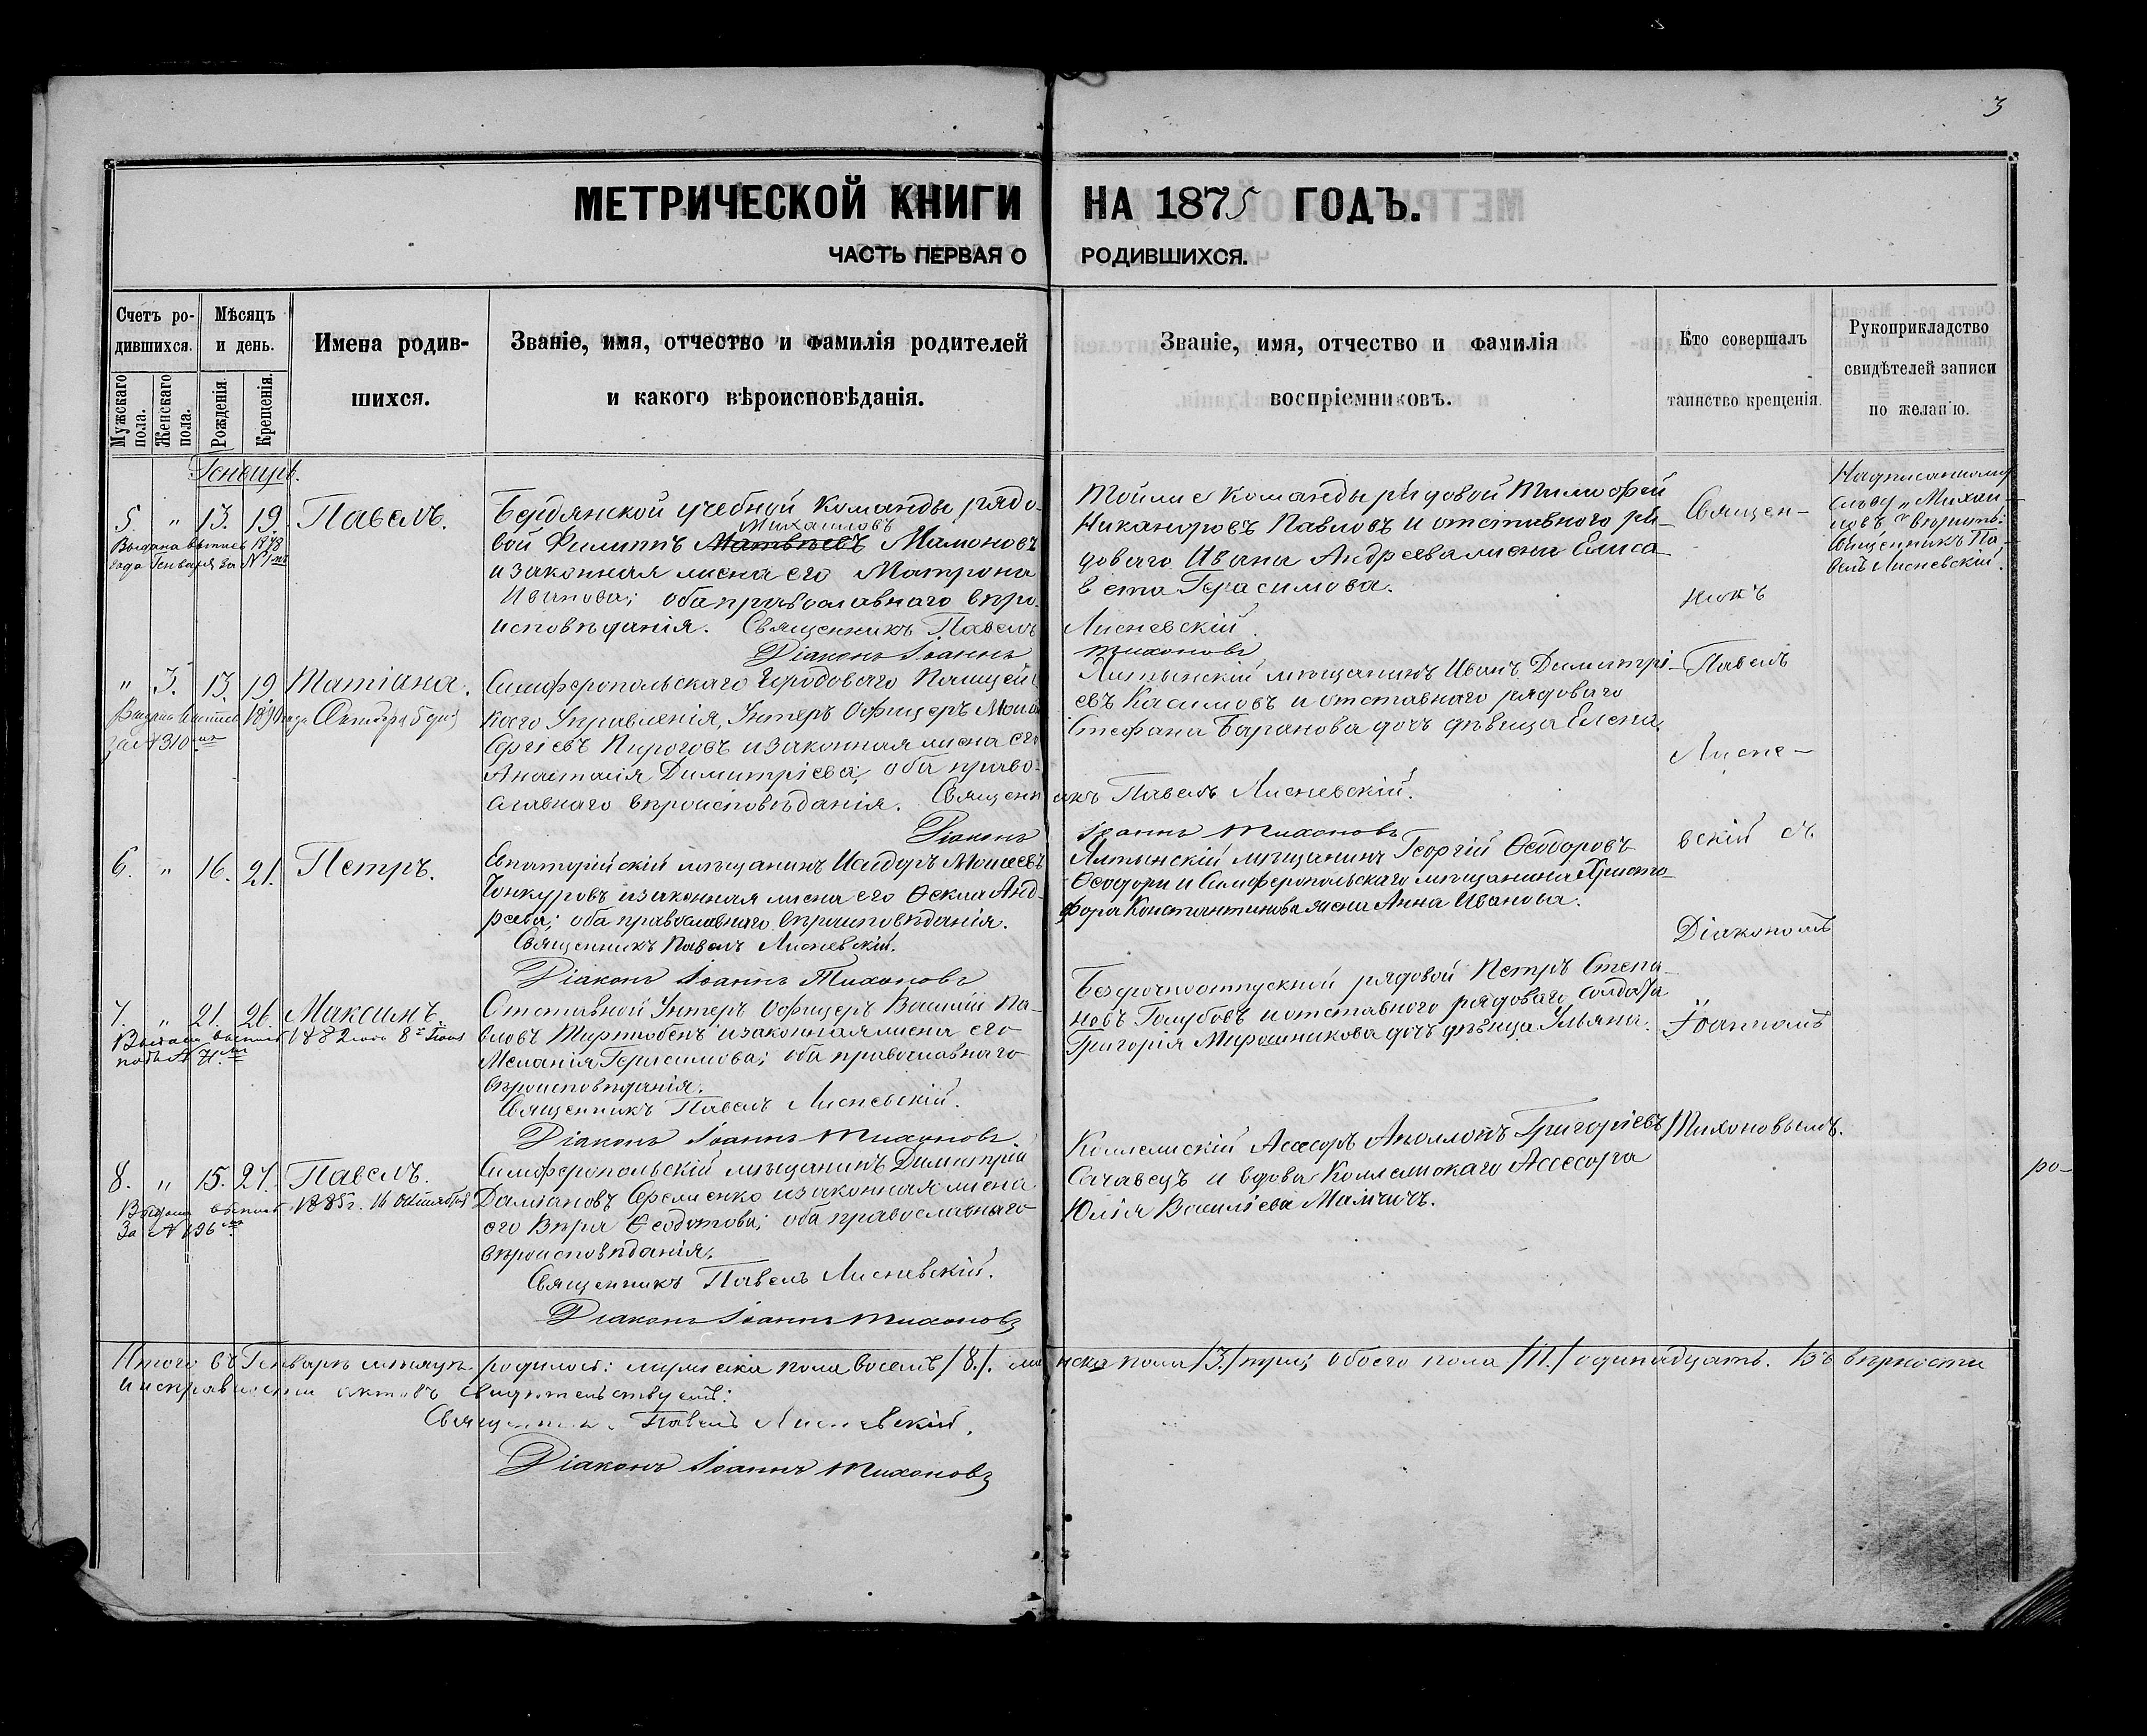 3
МЕТРИЧЕСКОЙ КНИГИ НА 1875 ГОДЪ.
ЧАСТЬ ПЕРВАЯ О РОДИВШИХСЯ.
Счетъ родившихся.
Мужскаго пола.
Женскаго пола.
Мѣсяцъ и день.
Рожденія.
Крещенія.
Имена родившихся.
Званіе, имя, отчество и фамилія родителей
и какого вѣроисповѣданія.
Званіе, имя, отчество и фамилія
воспріемниковъ.
Кто совершалъ
таинство крещенія.
Рукоприкладство
свидѣтелей записи
по желанію.
Генварь.
5. " 13. 19. Павелъ.
Выдана выпись 1878
года Генваря за №
Бердянской учебной команды рядо-
Михаиловъ
вой Филиппъ Матвѣевъ Мамоновъ
и законная жена его Матрона
Иванова; оба православнаго вѣро-
исповѣданія. Священникъ Павелъ Лисневскій.
Діаконъ Іоаннъ Тихоновъ
Тойже команды рядовой Тимофей
Никаноровъ Павловъ и отставного ря-
доваго Ивана Андреева жена Елиса-
вета Герасимова.
Надписанному
слову „Михаи-
ловъ" вѣрить:
Священникъ Па-
велъ Лисневскій.
" 3. 13. 19 Татіана.
Выдана выпись 1890 года Октября 5 дня
за № 310
Симферопольскаго Городоваго Полицей-
скаго Управленія, Унтеръ Офицеръ
Сергіевъ Пироговъ и законная жена его
Анастасія Димитріева; оба право-
славнаго вѣроисповѣданія. Священникъ Павелъ Лисневскій.
Діаконъ Іоаннъ Тихоновъ
мѣщанинъ Иванъ Димитрі-
евъ Касимовъ и отставного рядоваго
Стефана Баранова дочь дѣвица Елена.
6. " 16. 21. Петръ.
Евпаторійскій мѣщанинъ Исидоръ Моисеевъ
Чонкуровъ и законная жена его Ѳекла Анд-
реева; оба православнаго вѣроисповѣданія.
Священникъ Павелъ Лисневскій.
Діаконъ Іоаннъ Тихоновъ
Ялтынскій мѣщанинъ Георгій Ѳеодоровъ
Ѳеодори и Симферопольскаго мѣщанина Христо-
фора Константинова жена Анна Иванова.
7. " 21. 26. Максимъ.
Выдана выпись 1882 года 8
подъ № 71
Отставной Унтеръ Офицеръ Василій Па-
вловъ и законная жена его
Меланія Герасимова; оба православнаго
вѣроисповѣданія.
Священникъ Павелъ Лисневскій.
Діаконъ Іоаннъ Тихоновъ.
Безсрочноотпускной рядовой Петръ Степа-
новъ Голубовъ и отставного рядоваго солдата
Григорія Мирошникова дочь дѣвица Ульяна.
8. " 15. 27. Павелъ.
Выдана выпись 1885 г. 16 Октября
За № 196
Симферопольскій мѣщанинъ Димитрій
Даміановъ Ѳеменко и законная жена
его Вѣра Ѳеодотова; оба православнаго
вѣроисповѣданія.
Священникъ Павелъ Лисневскій.
Діаконъ Іоаннъ Тихоновъ
Коллежскій Асесоръ Аполлонъ Григоріевъ
Сачавецъ и вдова Коллежскаго Ассесора
Юлія Василіева Мамчичъ.
Священ-
никъ
Павелъ
Лисне-
вскій съ
Діакономъ
Іоанномъ
Тихоновымъ.
ро-
Итого въ Генварѣ мѣсяцѣ родилось: мужеска пола восемь /8./. женска пола /3./ три; обоего пола /11./ одинадцать. Въ вѣрности
и исправности актовъ свидѣтельствуемъ:
Священникъ Павелъ Лисневскій.
Діаконъ Іоаннъ Тихоновъ